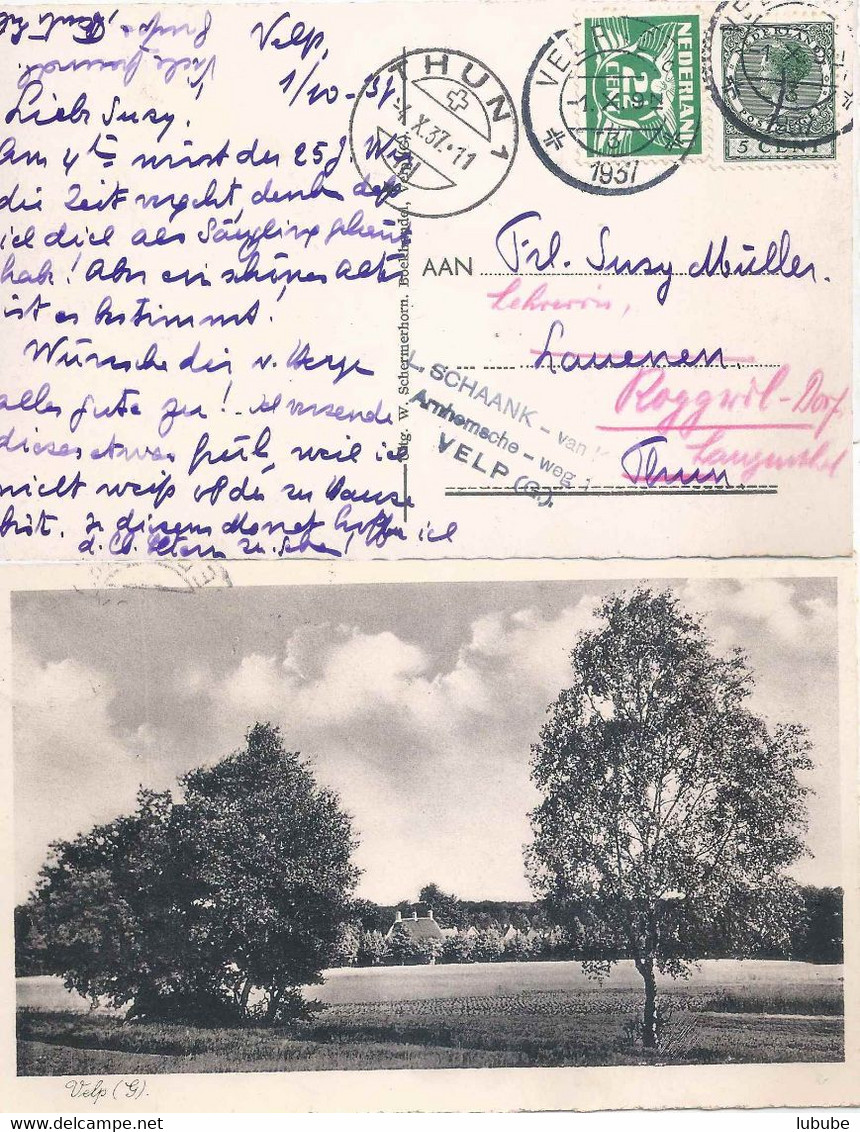 Velp,
1/10-37
Viele
Liebe Susy!
Am 4ten wirst du 25 J. Wie
die Zeit vergeht, denken daß
ich dich als Säugling gekannt
hab! Aber ein schönes Alter
ist es bestimmt!
Wünsche dir v. Herze
alles gute zu! Ich versende
dieses etwas früh, weil ich
nicht weiß ob du zu Hause
bist. In diesem Monat hoffe ich
d. lb. Eltern zu sehen!
THUN 1
-4.X.37.-11
VELP
1.X. 19
1937
NEDERLAND
2½
CENT
NEDERLAND
POSTZEGEL
5 CENT
Uitg. W. Schermerhorn. Boekhandel, Velp
AAN Frl. Susy Müller.
Lehrerin,
Lauenen.
Roggwil-Dorf
Langenthal
Thun.
L. SCHAANK - van
Arnhemsche - weg 1
VELP (G.).
Velp (G).
lubube